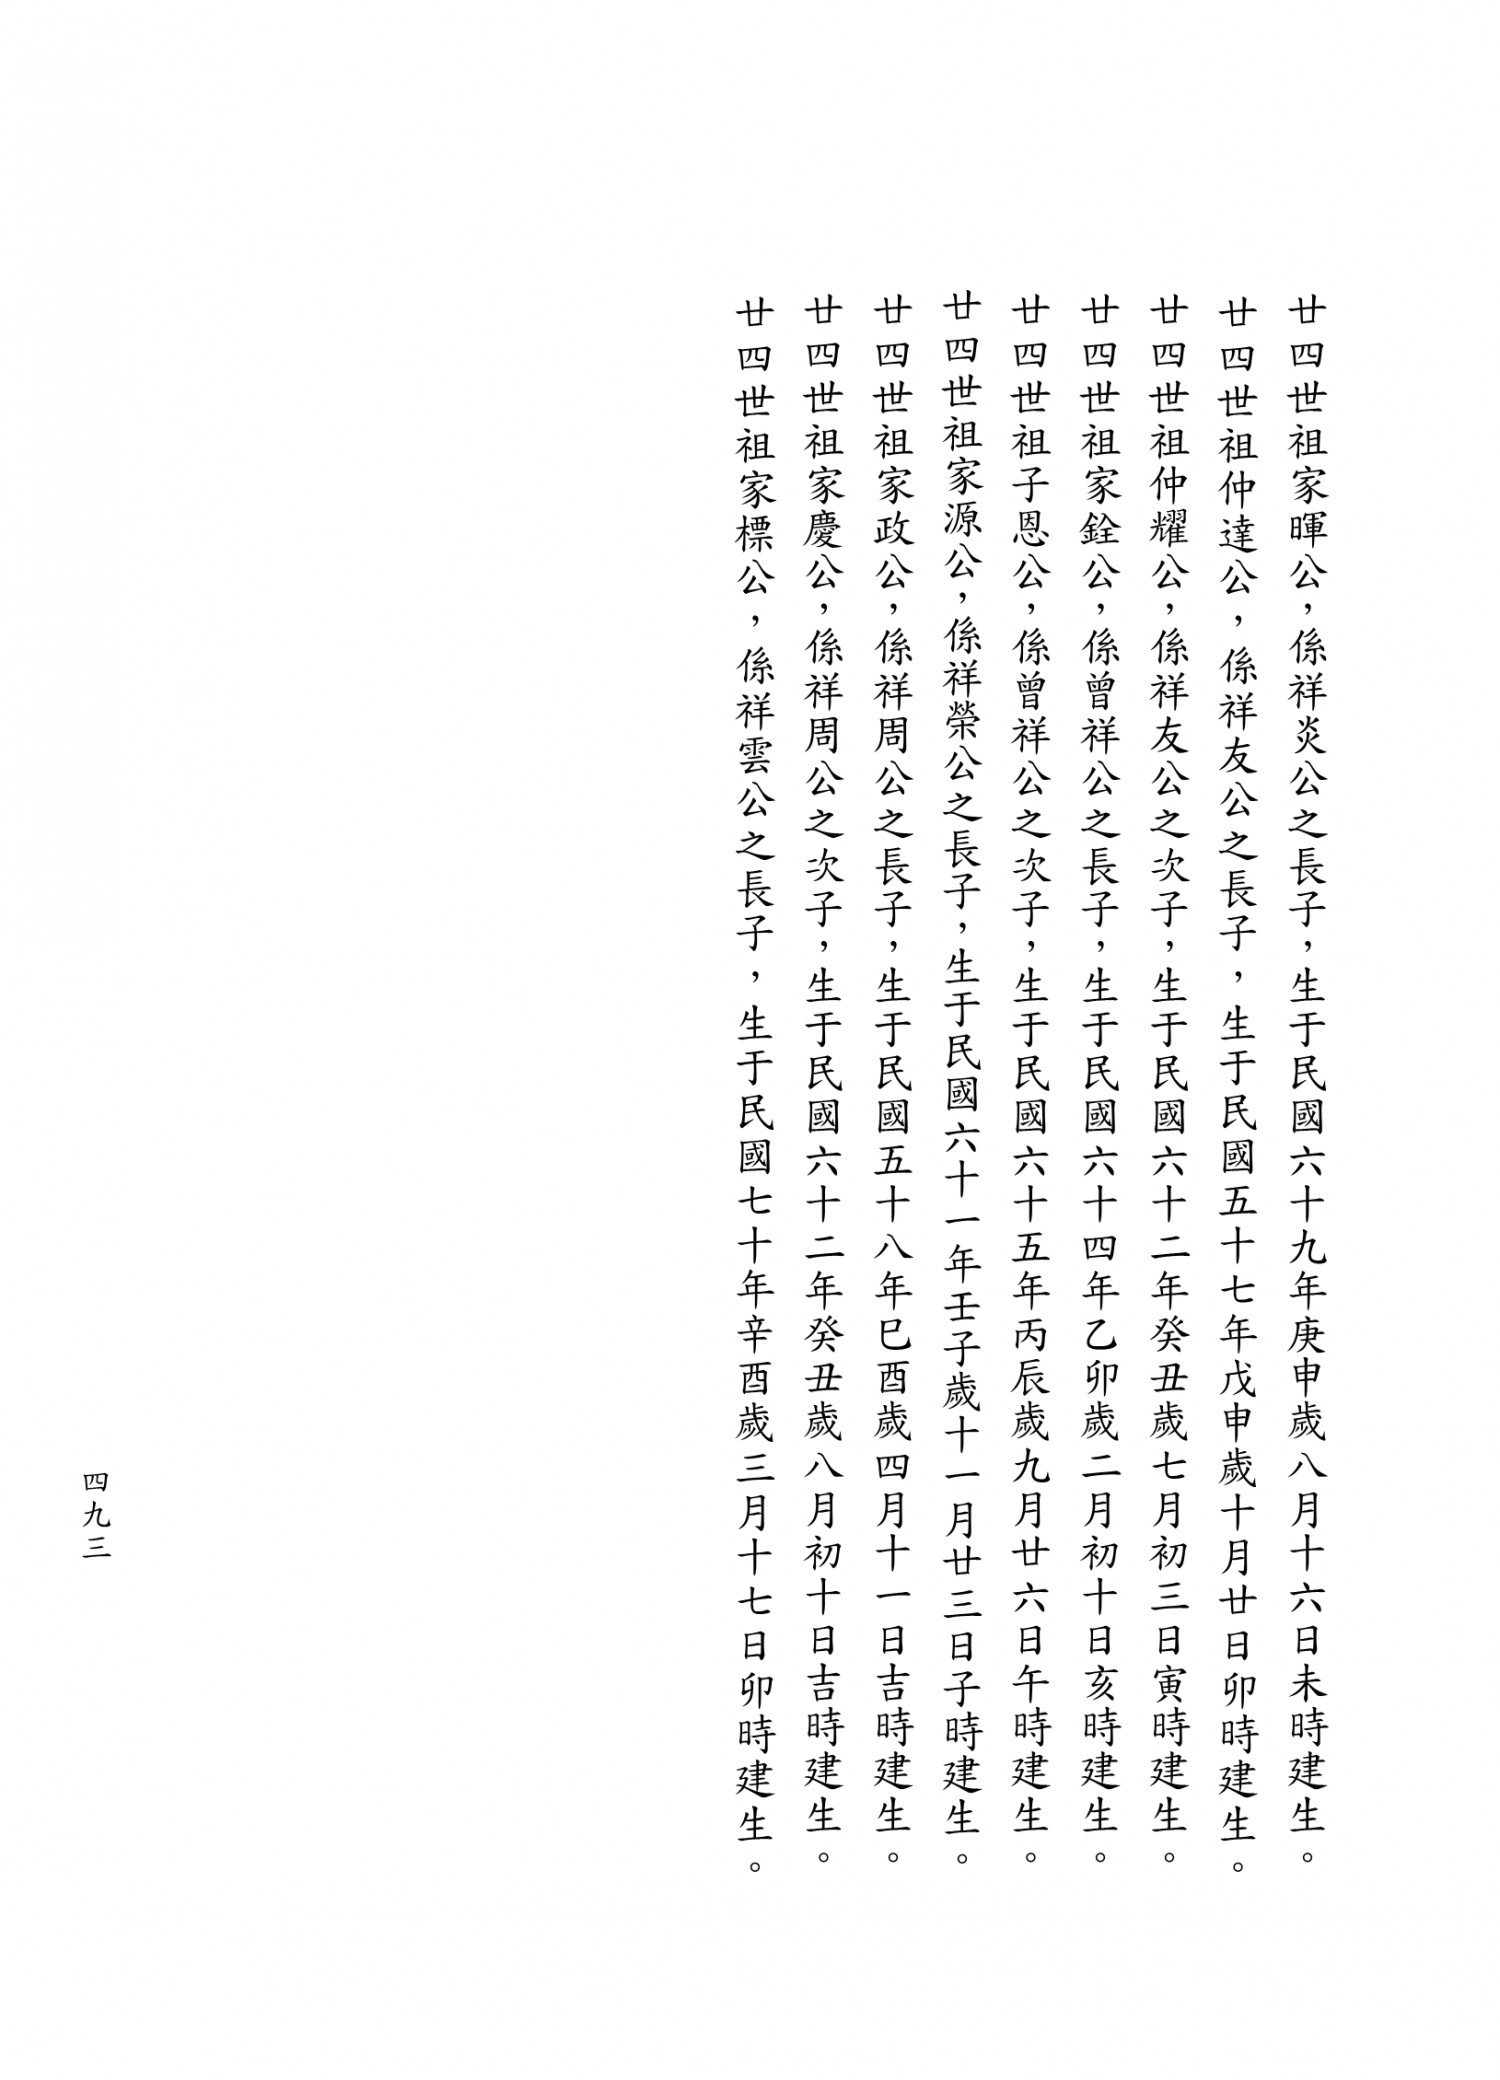 廿四世祖家暉公，係祥炎公之長子，生于民國六十九年庚申歲八月十六日未時建生。
廿四世祖仲達公，係祥友公之長子，生于民國五十七年戊申歲十月廿日卯時建生。
廿四世祖仲耀公，係祥友公之次子，生于民國六十二年癸丑歲七月初三日寅時建生。
廿四世祖家銓公，係曾祥公之長子，生于民國六十四年乙卯歲二月初十日亥時建生。
廿四世祖子恩公，係曾祥公之次子，生于民國六十五年丙辰歲九月廿六日午時建生。
廿四世祖家源公，係祥榮公之長子，生于民國六十一年壬子歲十一月廿三日子時建生。
廿四世祖家政公，係祥周公之長子，生于民國五十八年巳酉歲四月十一日吉時建生。
廿四世祖家慶公，係祥周公之次子，生于民國六十二年癸丑歲八月初十日吉時建生。
廿四世祖家標公，係祥雲公之長子，生于民國七十年辛酉歲三月十七日卯時建生。
四九三